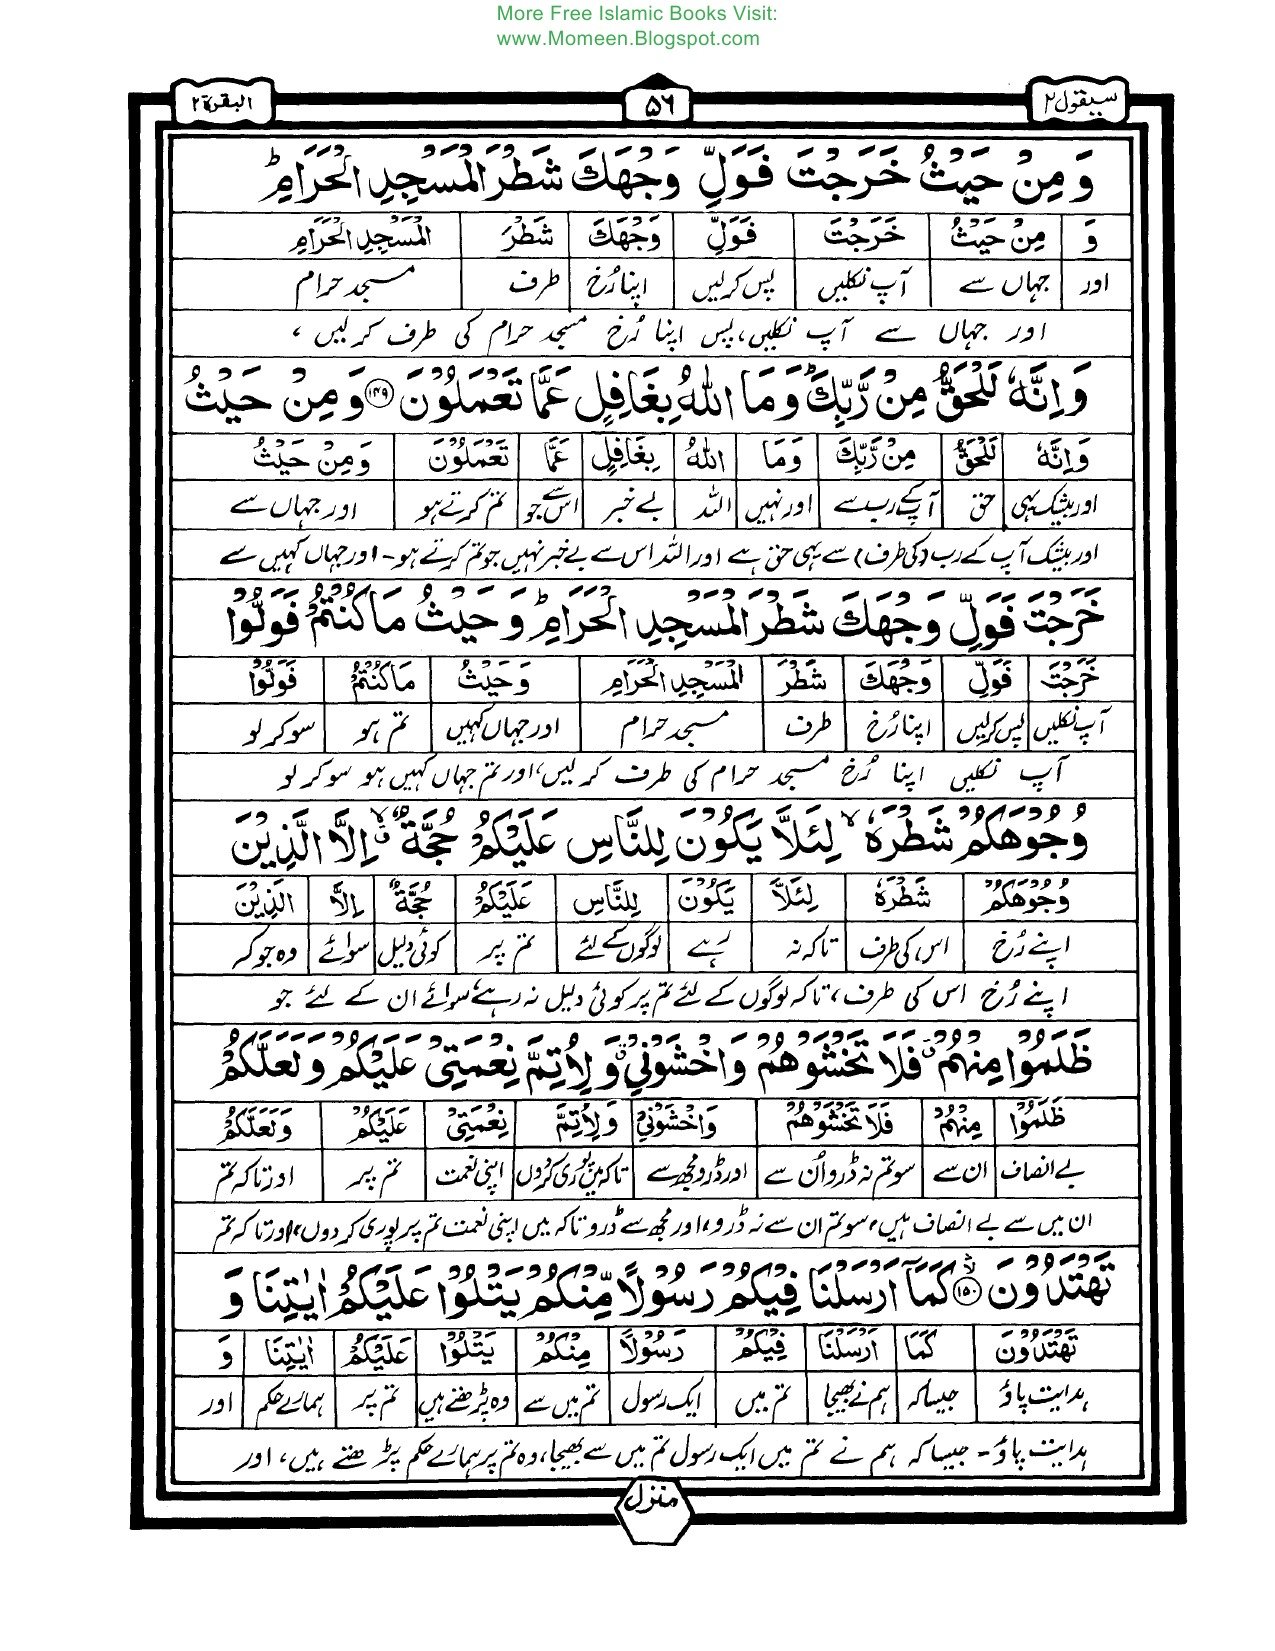 More Free Islamic Books Visit:
www.Momeen.Blogspot.com
سیقول ۲ ۵۶ البقرة ۲
وَ مِنْ حَیْثُ خَرَجْتَ فَوَلِّ وَجْهَكَ شَطْرَ الْمَسْجِدِ الْحَرَامِ ؕ
وَ مِنْ حَیْثُ خَرَجْتَ فَوَلِّ وَجْهَكَ شَطْرَ الْمَسْجِدِ الْحَرَامِ
اور جہاں سے آپ نکلیں پس کرلیں اپنا رُخ طرف مسجد حرام
اور جہاں سے آپ نکلیں، پس اپنا رُخ مسجد حرام کی طرف کرلیں،
وَ اِنَّهٗ لَلْحَقُّ مِنْ رَّبِّكَ ؕ وَ مَا اللّٰهُ بِغَافِلٍ عَمَّا تَعْمَلُوْنَ ۱۴۹ وَ مِنْ حَیْثُ
وَ اِنَّهٗ لَلْحَقُّ مِنْ رَّبِّكَ وَ مَا اللّٰهُ بِغَافِلٍ عَمَّا تَعْمَلُوْنَ وَ مِنْ حَیْثُ
اور بیشک یہی حق آپکے رب سے اور نہیں اللہ بے خبر اس سے جو تم کرتے ہو اور جہاں سے
اور بیشک آپ کے رب (کی طرف) سے یہی حق ہے اور اللہ اس سے بے خبر نہیں جو تم کرتے ہو۔ اور جہاں کہیں سے
خَرَجْتَ فَوَلِّ وَجْهَكَ شَطْرَ الْمَسْجِدِ الْحَرَامِ ؕ وَ حَیْثُ مَا كُنْتُمْ فَوَلُّوْا
خَرَجْتَ فَوَلِّ وَجْهَكَ شَطْرَ الْمَسْجِدِ الْحَرَامِ وَ حَیْثُ مَا كُنْتُمْ فَوَلُّوْا
آپ نکلیں پس کرلیں اپنا رُخ طرف مسجد حرام اور جہاں کہیں تم ہو سو کر لو
آپ نکلیں اپنا رُخ مسجد حرام کی طرف کر لیں، اور تم جہاں کہیں ہو سو کر لو
وُجُوْهَكُمْ شَطْرَهٗ ۙ لِئَلَّا یَكُوْنَ لِلنَّاسِ عَلَیْكُمْ حُجَّةٌ ۙۗ اِلَّا الَّذِیْنَ
وُجُوْهَكُمْ شَطْرَهٗ لِئَلَّا یَكُوْنَ لِلنَّاسِ عَلَیْكُمْ حُجَّةٌ اِلَّا الَّذِیْنَ
اپنے رُخ اس کی طرف تاکہ نہ رہے لوگوں کے لئے تم پر کوئی دلیل سوائے وہ جو کہ
اپنے رُخ اس کی طرف، تاکہ لوگوں کے لئے تم پر کوئی دلیل نہ رہے سوائے ان کے لئے جو
ظَلَمُوْا مِنْهُمْ ۗ فَلَا تَخْشَوْهُمْ وَ اخْشَوْنِیْ ۗ وَ لِاُتِمَّ نِعْمَتِیْ عَلَیْكُمْ وَ لَعَلَّكُمْ
ظَلَمُوْا مِنْهُمْ فَلَا تَخْشَوْهُمْ وَ اخْشَوْنِیْ وَ لِاُتِمَّ نِعْمَتِیْ عَلَیْكُمْ وَ لَعَلَّكُمْ
بے انصاف ان سے سو تم نہ ڈرو اُن سے اور ڈرو مجھ سے تاکہ میں پوری کردوں اپنی نعمت تم پر اور تاکہ تم
ان میں سے بے انصاف ہیں، سو تم ان سے نہ ڈرو، اور مجھ سے ڈرو تاکہ میں اپنی نعمت تم پر پوری کر دوں، اور تاکہ تم
تَهْتَدُوْنَ ۱۵۰ كَمَاۤ اَرْسَلْنَا فِیْكُمْ رَسُوْلًا مِّنْكُمْ یَتْلُوْا عَلَیْكُمْ اٰیٰتِنَا وَ
تَهْتَدُوْنَ كَمَاۤ اَرْسَلْنَا فِیْكُمْ رَسُوْلًا مِنْكُمْ یَتْلُوْا عَلَیْكُمْ اٰیٰتِنَا وَ
ہدایت پاؤ جیسا کہ ہم نے بھیجا تم میں ایک رسول تم میں سے وہ پڑھتے ہیں تم پر ہمارے حکم اور
ہدایت پاؤ۔ جیسا کہ ہم نے تم میں ایک رسول تم میں سے بھیجا، وہ تم پر ہمارے حکم پڑھتے ہیں، اور
منزل